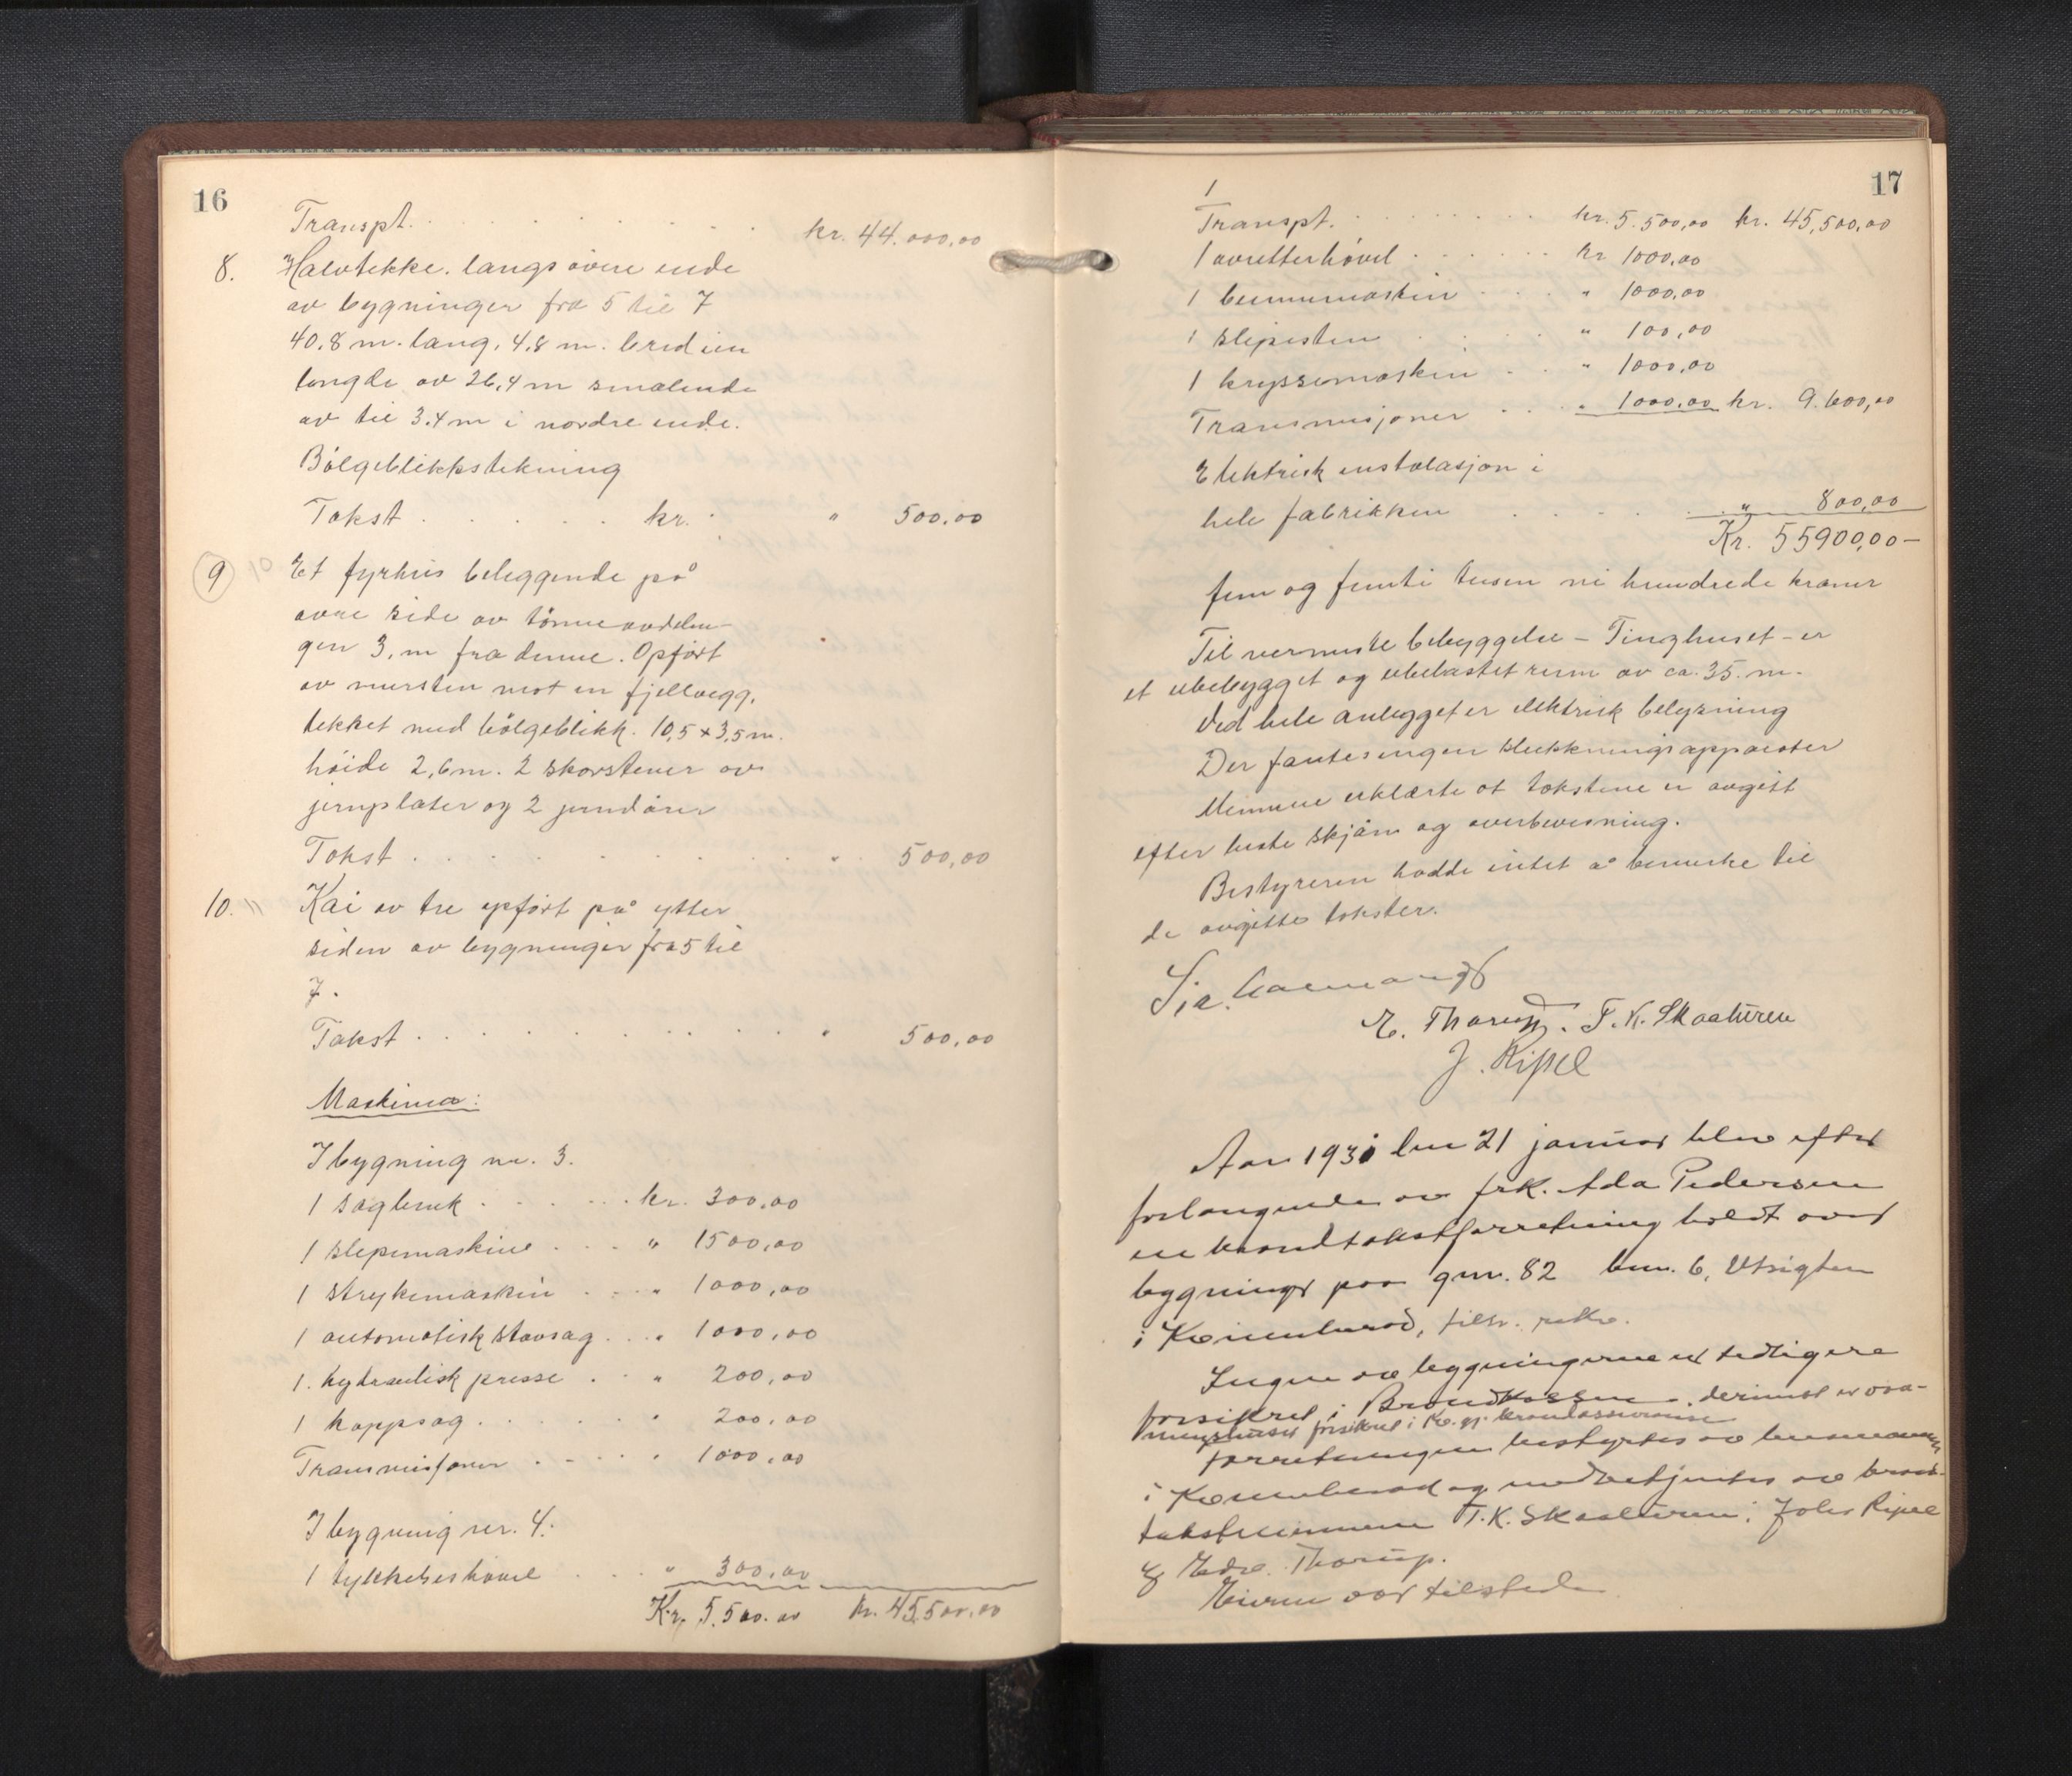 16
Transpt. . . . . . . . kr. 44.000,00
8. Halvtekke. langs øvere ende
av bygninger fra 5 til 7
40.8 m. lang, 4,8 m. bred i en
lengde av 26,4 m smalende
av til 3.4 m i nordre ende.
Bølgeblikkstekning
Takst . . . . . . kr. " 500.00
9 Et fyrhus beliggende på
øvre side av tønneavdelin-
gen 3, m fra denne. Opført
av mursten mot en fjellvegg,
tekket med bølgeblikk. 10,5 x 3,5 m.
høide 2,6 m. 2 skorstener av
jernplater og 2 jerndører
Takst . . . . . . . . " 500,00
10. Kai av tre opført på ytter
siden av bygninger fra 5 til
7.
Takst . . . . . . . . " 500,00
Maskiner:
I bygning nr. 3.
1 sagbruk . . . . . kr. 300,00
1 slepemaskine . . . " 1500,00
1 strykemaskin . . . " 1000,00
1 automatisk stavsag . . " 1000,00
1. hydraulisk presse . . " 200,00
1 kappsag . . . . . " 200,00
Transmisjoner . . . . " 1000,00
I bygning nr. 4.
1 tykkelseshøvel . . . " 300,00
Kr. 5.500.00 kr. 45.500,00
17
1
Transpt. . . . . . . . kr. 5.500,00 kr. 45,500,00
1 avretterhøvel . . . . . kr 1000,00
1 bunnmaskin . . . " 1000,00
1 slipesten . . . " 100,00
1 kryssemaskin . . " 1000,00
Transmisjoner . . . " 1000,00 kr. 9.600,00
Elektrisk installasjon i
hele fabrikken . . . . . " 800,00
Kr. 55900,00 —
fem og femti tusen ni hundrede kroner
Til nermeste bebyggelse – Tinghuset – er
et ubebygget og ubelastet rum av ca. 35. m.
Ved hele anlegget er elektrisk belysning
Der fantes ingen slukkningsapparater
Mennene erklærte at takstene er avgitt
efter beste skjøn og overbevisning.
Bestyreren hadde intet å bemerke til
de avgitte takster.
E. Thorup. T. K. Skaaturen
J. Ripel
Aar 1931 den 21 januar blev efter
forlangende av frk. Ada Pedersen
en brandtakstforretning holdt over
bygninger paa gnr. 82 bnr. 6, Utsigten
i Kvinnherad,
Ingen av bygningerne er tidligere
forsikret i Brandkassen. derimot er vaa-
ningshuset forsikret i Kv. gj. brandassuranse
Forretningen bestyrtes av lensmannen
i Kvinnherad og medbetjentes av brand-
takstmennene T. K. Skaaturen, Johs Ripel
og Edv. Thorup.
Eieren var tilstede